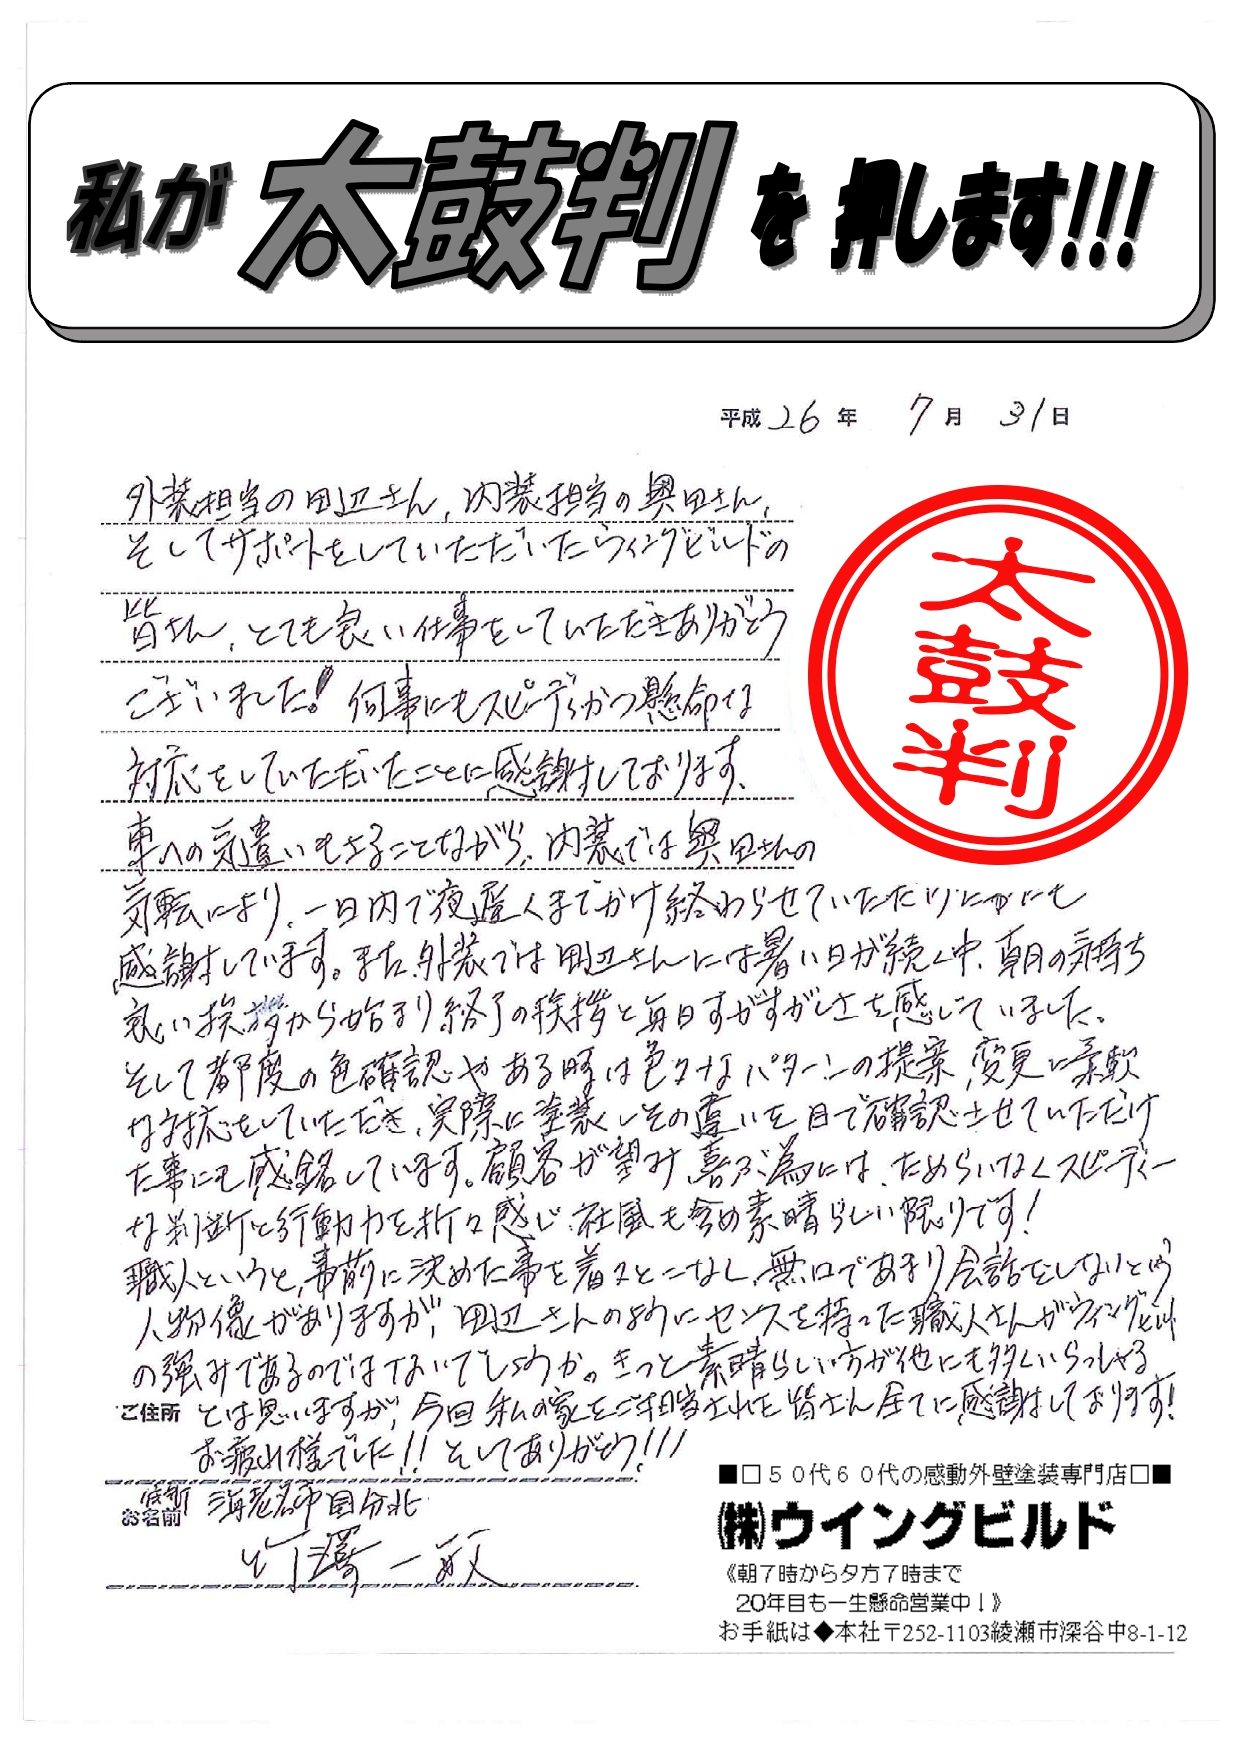 私が太鼓判を押します!!!
平成26年 7月 31日
外装担当の田辺さん、内装担当の奥田さん、
そしてサポートをしていただいたウィングビルドの
皆さん、とても良い仕事をしていただきありがとう
ございました! 何事にもスピーディかつ懸命な
対応をしていただいたことに感謝しております。
太鼓判
車への気遣いもさることながら、内装では奥田さんの
気転により、一日内で夜遅くまでかけ終わらせていただ
感謝しています。また、外装では田辺さんには暑い日が続く中、朝の気持ち
良い挨拶から始まり終了の挨拶と毎日すがすがしさを感じていました。
そして都度の色確認やある時は色々なパターンの提案、変更に柔軟
な対応をしていただき、実際に塗装しその違いを目で確認させていただけ
た事にも感銘しています。顧客が望み、喜ぶ為には、ためらいなくスピーディー
な判断と行動力を折々感じ、社風も含め素晴らしい限りです!
職人というと、事前に決めた事を着々とこなし、無口であまり会話をしないという
人物像がありますが、田辺さんのようにセンスを持った職人さんがウィングビルド
の強みであるのではないでしょうか。きっと素晴らしい方が他にも多くいらっしゃる
ご住所 とは思いますが、今回私の家をご担当された皆さん全てに感謝しております!
お疲れ様でした!! そしてありがとう!!!
海老名市国分北
お名前
一敏
■□50代60代の感動外壁塗装専門店□■
㈱ウイングビルド
《朝7時から夕方7時まで
20年目も一生懸命営業中!》
お手紙は◆本社〒252-1103綾瀬市深谷中8-1-12